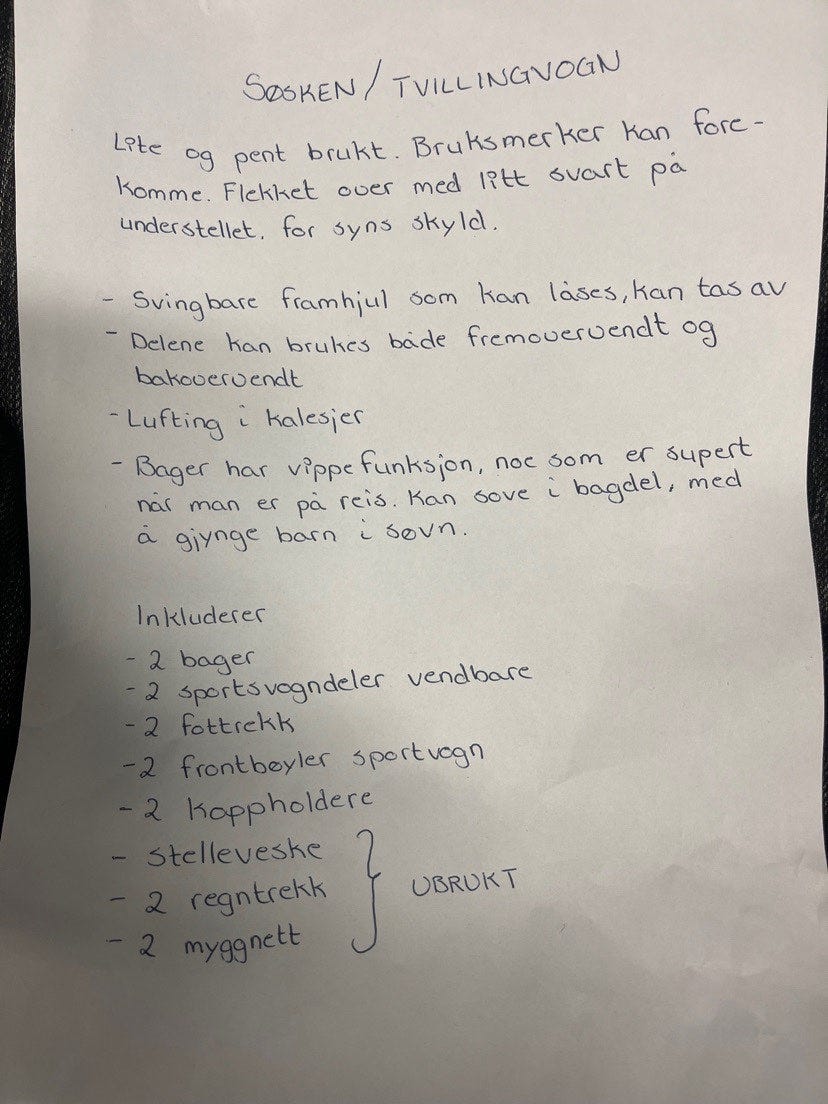 SØSKEN / TVILLINGVOGN
Lite og pent brukt. Bruksmerker kan fore-
komme. Flekket over med litt svart på
understellet, for syns skyld.
- Svingbare framhjul som kan låses, kan tas av
- Delene kan brukes både fremovervendt og
bakovervendt
- Lufting i kalesjer
- Bager har vippefunksjon, noe som er supert
når man er på reis. Kan sove i bagdel, med
å gjynge barn i søvn.
Inkluderer
- 2 bager
- 2 sportsvogndeler vendbare
- 2 fottrekk
- 2 frontbøyler sportvogn
- 2 koppholdere
- stelleveske
- 2 regntrekk } UBRUKT
- 2 myggnett